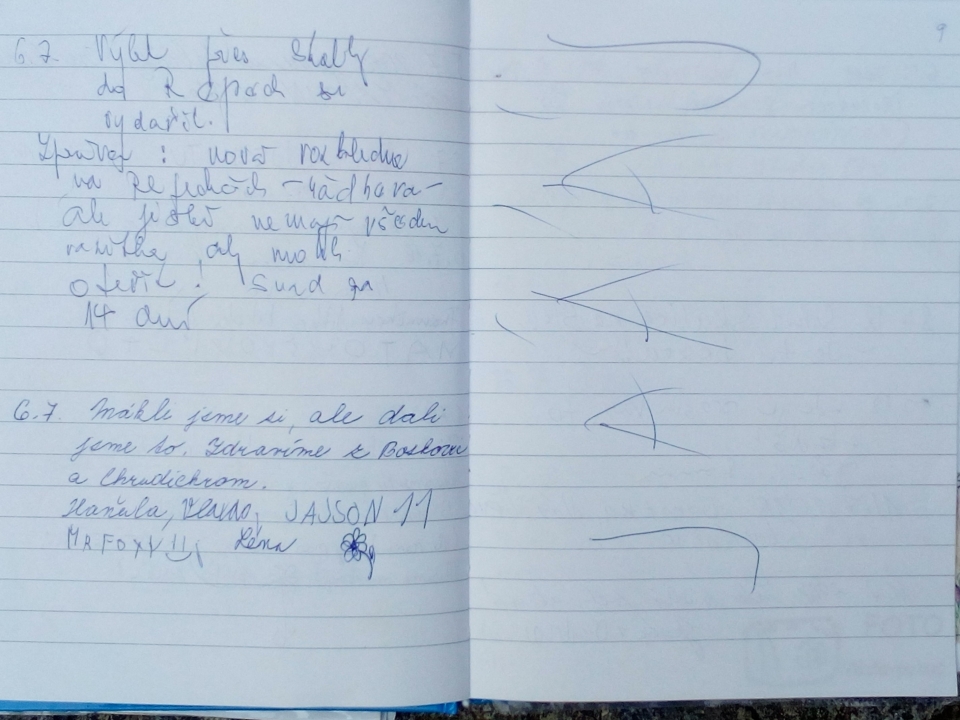 6.7. Výlet přes Skalky
do Řepech se
vydařil.
Zpráva : nová rozhledna
na - nádhera -
ale ještě nemají všechna
razítka, aby mohli
otevřít! Snad za
14 dní
6.7. Mákli jsme si, ale dali
jsme to. Zdravíme z Boskovic
a Chrudichrom.
Hančula, JAJSON 11
MR FOXY !! Léna
9